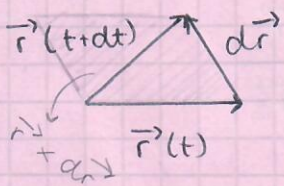 r⃗(t+dt)
dr⃗
r⃗(t)
r⃗
+
dr⃗